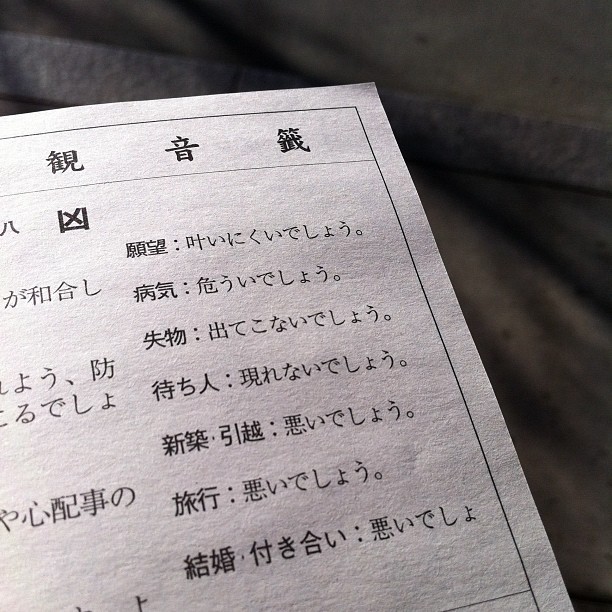 観音籤
八 凶
願望：叶いにくいでしょう。
病気：危ういでしょう。
失物：出てこないでしょう。
待ち人：現れないでしょう。
新築・引越：悪いでしょう。
旅行：悪いでしょう。
結婚・付き合い：悪いでしょ
が和合し
れよう、防
こるでしょ
や心配事の